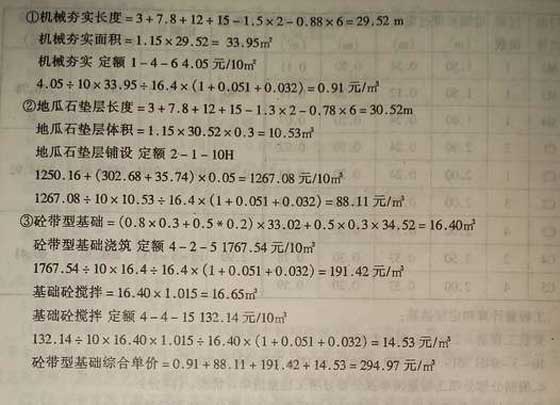 ①机械夯实长度=3+7.8+12+15-1.5×2-0.88×6=29.52 m
机械夯实面积=1.15×29.52= 33.95m²
机械夯实 定额 1-4-6 4.05 元/10m²
4.05÷10×33.95÷16.4×(1+0.051+0.032)=0.91 元/m³
②地瓜石垫层长度=3+7.8+12+15-1.3×2-0.78×6=30.52m
地瓜石垫层体积=1.15×30.52×0.3=10.53m³
地瓜石垫层铺设 定额 2-1-10H
1250.16+(302.68+35.74)×0.05=1267.08 元/10m³
1267.08÷10×10.53÷16.4×(1+0.051+0.032)=88.11 元/m³
③砼带型基础=(0.8×0.3+0.5*0.2)×33.02+0.5×0.3×34.52=16.40m³
砼带型基础浇筑 定额 4-2-5 1767.54 元/10m³
1767.54÷10×16.4÷16.4×(1+0.051+0.032)=191.42 元/m³
基础砼搅拌=16.40×1.015=16.65m³
基础砼搅拌 定额 4-4-15 132.14 元/10m³
132.14÷10×16.40×1.015÷16.40×(1+0.051+0.032)=14.53 元/m³
砼带型基础综合单价=0.91+88.11+191.42+14.53=294.97 元/m³